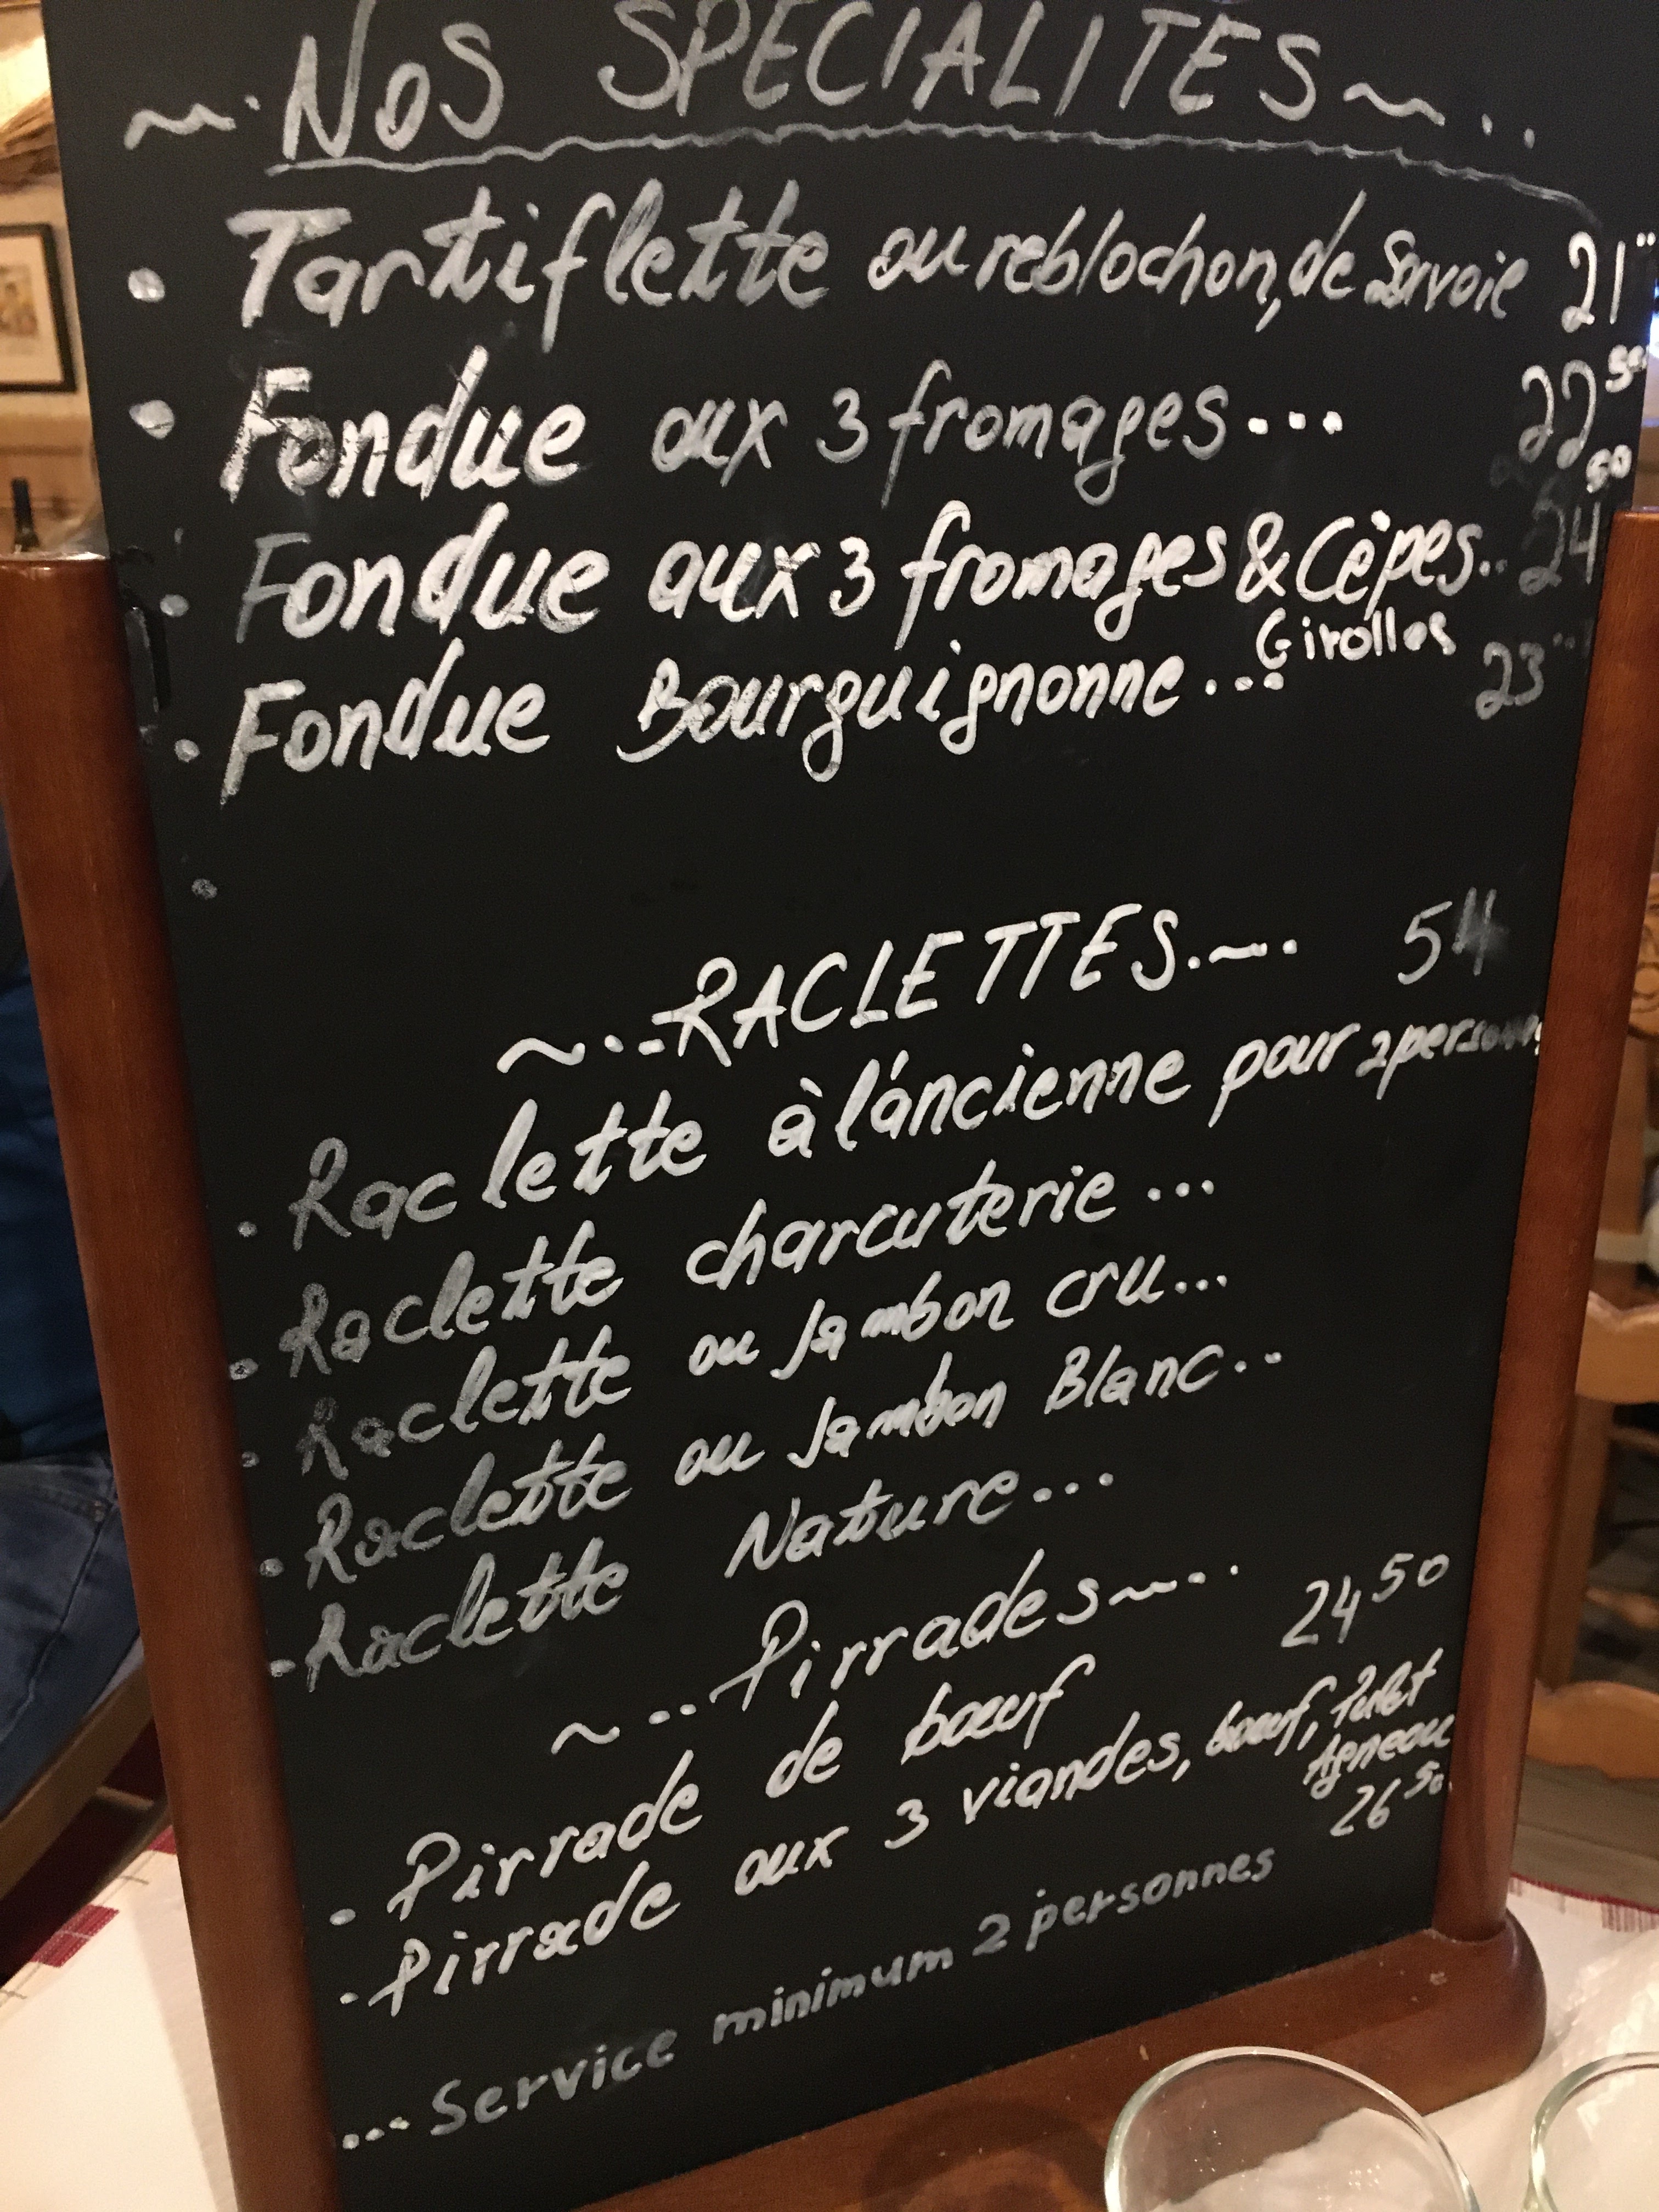 ~.. NOS SPECIALITES ~...
• Tartiflette au reblochon, de Savoie 21"
• Fondue aux 3 fromages... 22 50
• Fondue aux 3 fromages & Cèpes.. 24 50
Girolles
• Fondue Bourguignonne... 23"
•
~..-RACLETTES.~. 54
• Raclette à l'áncienne pour 2 personnes
• Raclette charcuterie...
• Raclette au Jambon cru...
• Raclette au Jambon Blanc..
- Raclette Nature...
~...Pirrades~...
24 50
• Pirrade de bœuf
• Pirrade aux 3 viandes, bœuf, Pulet
Agneau
26 50
...Service minimum 2 personnes